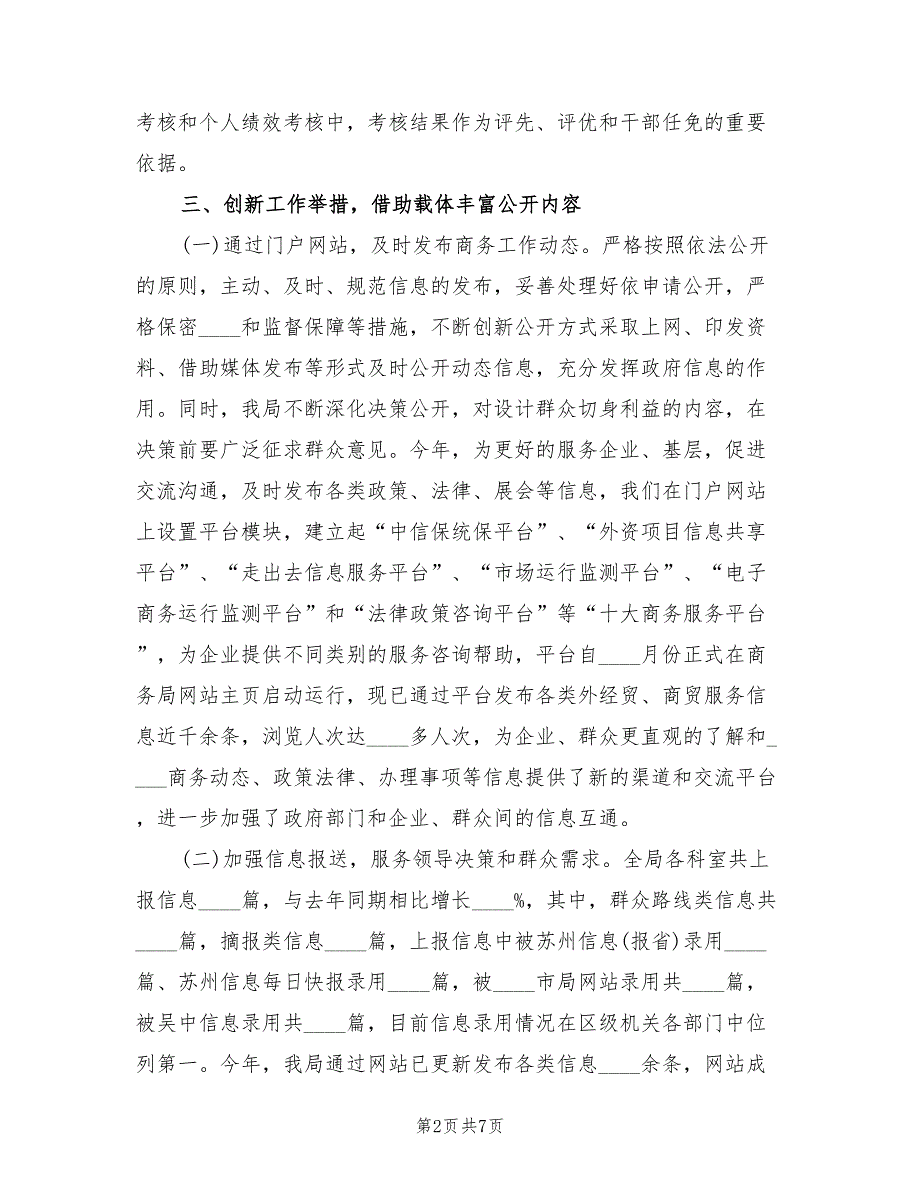 考核和个人绩效考核中，考核结果作为评先、评优和干部任免的重要
依据。
三、创新工作举措，借助载体丰富公开内容
(一)通过门户网站，及时发布商务工作动态。严格按照依法公开
的原则，主动、及时、规范信息的发布，妥善处理好依申请公开，严
格保密____和监督保障等措施，不断创新公开方式采取上网、印发资
料、借助媒体发布等形式及时公开动态信息，充分发挥政府信息的作
用。同时，我局不断深化决策公开，对设计群众切身利益的内容，在
决策前要广泛征求群众意见。今年，为更好的服务企业、基层，促进
交流沟通，及时发布各类政策、法律、展会等信息，我们在门户网站
上设置平台模块，建立起“中信保统保平台”、“外资项目信息共享
平台”、“走出去信息服务平台”、“市场运行监测平台”、“电子
商务运行监测平台”和“法律政策咨询平台”等“十大商务服务平台
”，为企业提供不同类别的服务咨询帮助，平台自____月份正式在商
务局网站主页启动运行，现已通过平台发布各类外经贸、商贸服务信
息近千余条，浏览人次达____多人次，为企业、群众更直观的了解和_
___商务动态、政策法律、办理事项等信息提供了新的渠道和交流平台
，进一步加强了政府部门和企业、群众间的信息互通。
(二)加强信息报送，服务领导决策和群众需求。全局各科室共上
报信息____篇，与去年同期相比增长____%，其中，群众路线类信息共
____篇，摘报类信息____篇，上报信息中被苏州信息(报省)录用____
篇、苏州信息每日快报录用____篇，被____市局网站录用共____篇，
被吴中信息录用共____篇，目前信息录用情况在区级机关各部门中位
列第一。今年，我局通过网站已更新发布各类信息____余条，网站成
第2页共7页